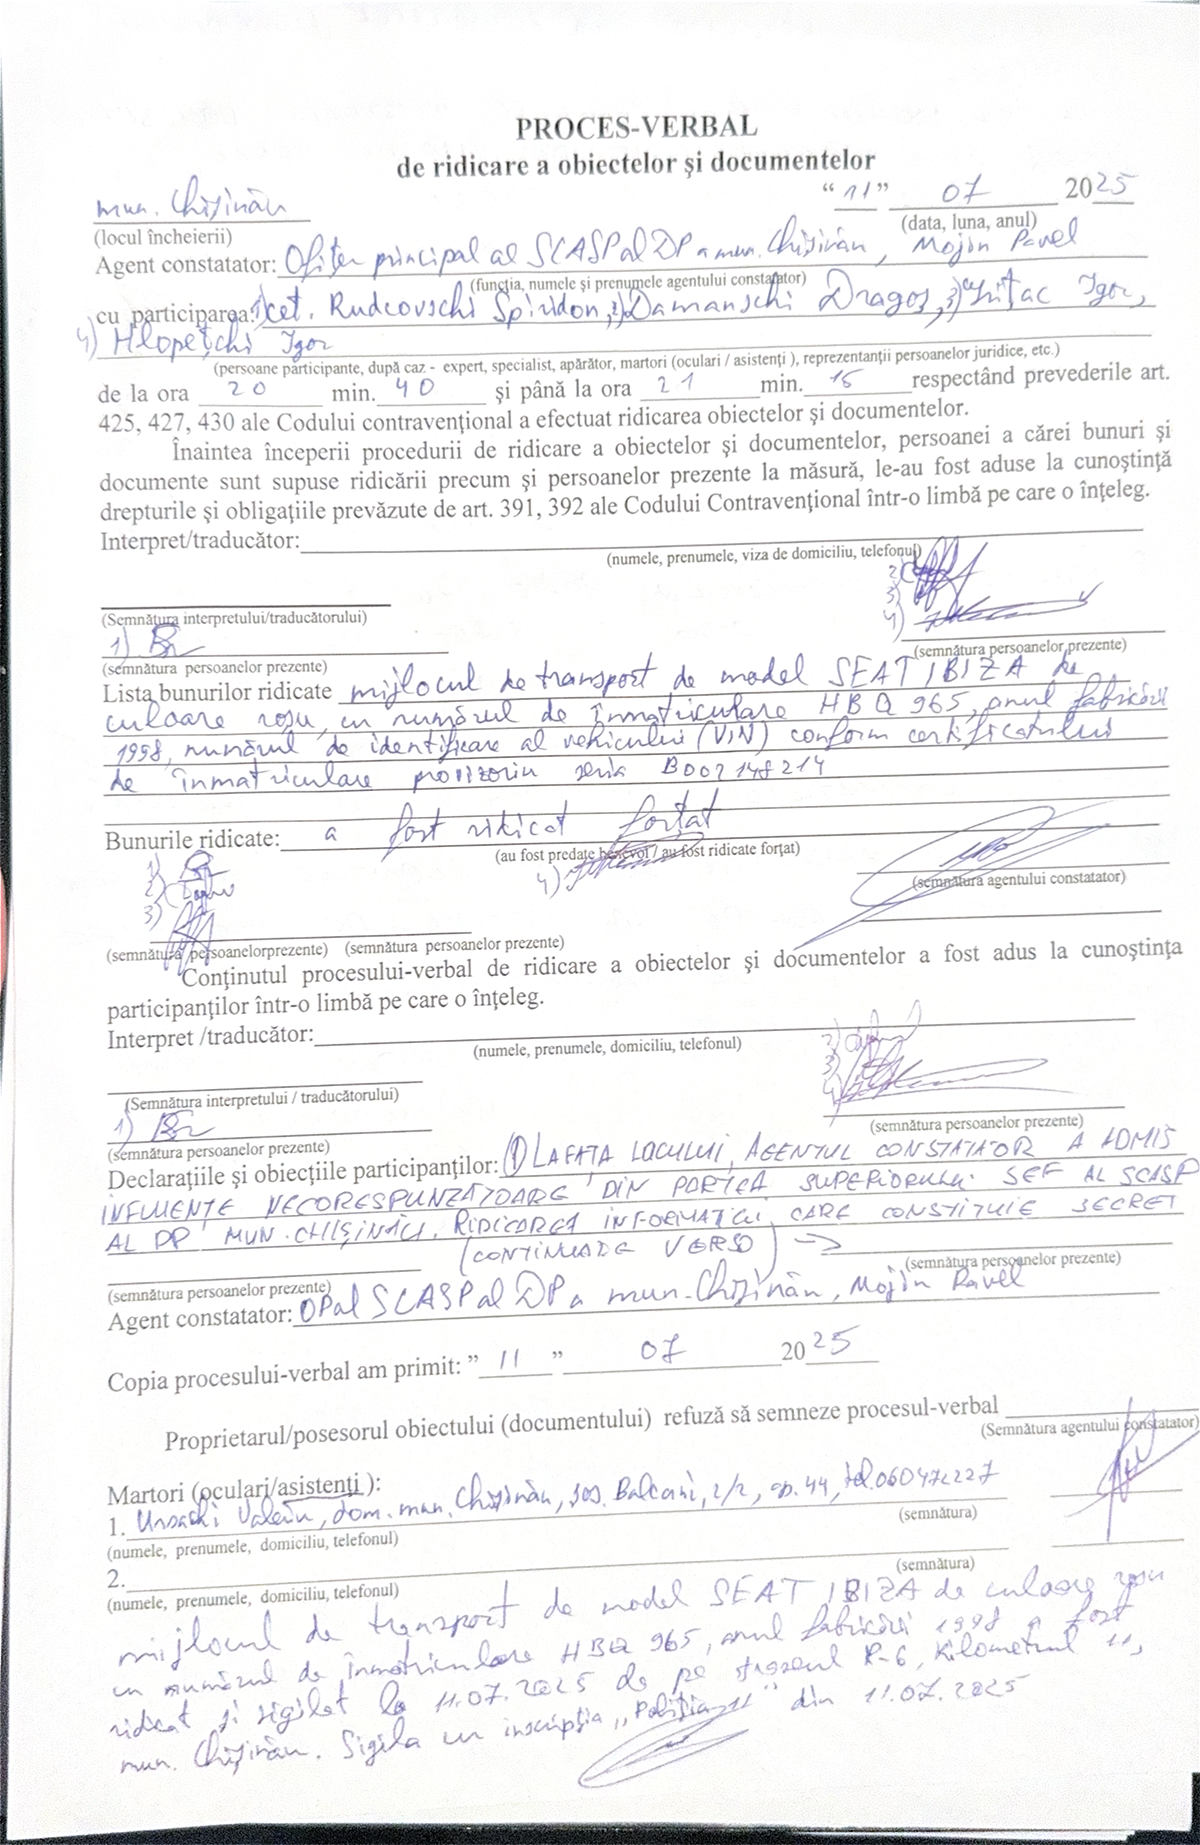 PROCES-VERBAL
de ridicare a obiectelor şi documentelor
mun. Chișinău “11” 07 2025
(locul încheierii) (data, luna, anul)
Agent constatator: Ofițer principal al SCASP al DP a mun. Chișinău, Mojin Pavel
(funcţia, numele şi prenumele agentului constatator)
cu participarea: 1) cet. Rudcovschi Spiridon, 2) Damanschi Dragoș, 3) Igor,
4) Hlopețchi Igor
(persoane participante, după caz - expert, specialist, apărător, martori (oculari / asistenţi ), reprezentanţii persoanelor juridice, etc.)
de la ora 20 min. 40 şi până la ora 21 min. 15 respectând prevederile art.
425, 427, 430 ale Codului contravenţional a efectuat ridicarea obiectelor şi documentelor.
Înaintea începerii procedurii de ridicare a obiectelor şi documentelor, persoanei a cărei bunuri şi
documente sunt supuse ridicării precum şi persoanelor prezente la măsură, le-au fost aduse la cunoştinţă
drepturile şi obligaţiile prevăzute de art. 391, 392 ale Codului Contravenţional într-o limbă pe care o înţeleg.
Interpret/traducător:
(numele, prenumele, viza de domiciliu, telefonul)
2)
3)
4)
(Semnătura interpretului/traducătorului)
1)
(semnătura persoanelor prezente) (semnătura persoanelor prezente)
Lista bunurilor ridicate mijlocul de transport de model SEAT IBIZA de
culoare roșu, cu numărul de înmatriculare HBQ 965, anul fabricării
1998, numărul de identificare al vehicului (VIN) conform certificatului
de înmatriculare provizoriu seria B002148214
Bunurile ridicate: a fost ridicat forțat
(au fost predate benevol / au fost ridicate forţat)
1)
2)
3)
4)
(semnătura agentului constatator)
(semnătura persoanelorprezente) (semnătura persoanelor prezente)
Conţinutul procesului-verbal de ridicare a obiectelor şi documentelor a fost adus la cunoştinţa
participanţilor într-o limbă pe care o înţeleg.
Interpret /traducător:
(numele, prenumele, domiciliu, telefonul)
2)
3)
4)
(Semnătura interpretului / traducătorului)
1)
(semnătura persoanelor prezente) (semnătura persoanelor prezente)
Declaraţiile şi obiecţiile participanţilor: (1) LA FAȚA LOCULUI, AGENTUL CONSTATATOR A ADMIS
INFLUENȚE NECORESPUNZĂTOARE DIN PARTEA SUPERIORULUI ȘEF AL SCASP
AL DP MUN. CHIȘINĂU. RIDICAREA INFORMAȚIEI CARE CONSTITUIE SECRET
(CONTINUARE VERSO) →
(semnătura persoanelor prezente) (semnătura persoanelor prezente)
Agent constatator: OP al SCASP al DP a mun. Chișinău, Mojin Pavel
Copia procesului-verbal am primit: ” 11 ” 07 2025
Proprietarul/posesorul obiectului (documentului) refuză să semneze procesul-verbal
(Semnătura agentului constatator)
Martori (oculari/asistenţi ):
1. Ursachi Valeriu, dom. mun. Chișinău, șos. Balcani, 2/2, ap. 44, tel. 060472227
(numele, prenumele, domiciliu, telefonul) (semnătura)
2.
(numele, prenumele, domiciliu, telefonul) (semnătura)
mijlocul de transport de model SEAT IBIZA de culoare roșu
cu numărul de înmatriculare HBQ 965, anul fabricării 1998 a fost
ridicat și sigilat la 11.07.2025 de pe traseul R-6, kilometrul 11,
mun. Chișinău. Sigila cu inscripția „Poliția-11” din 11.07.2025